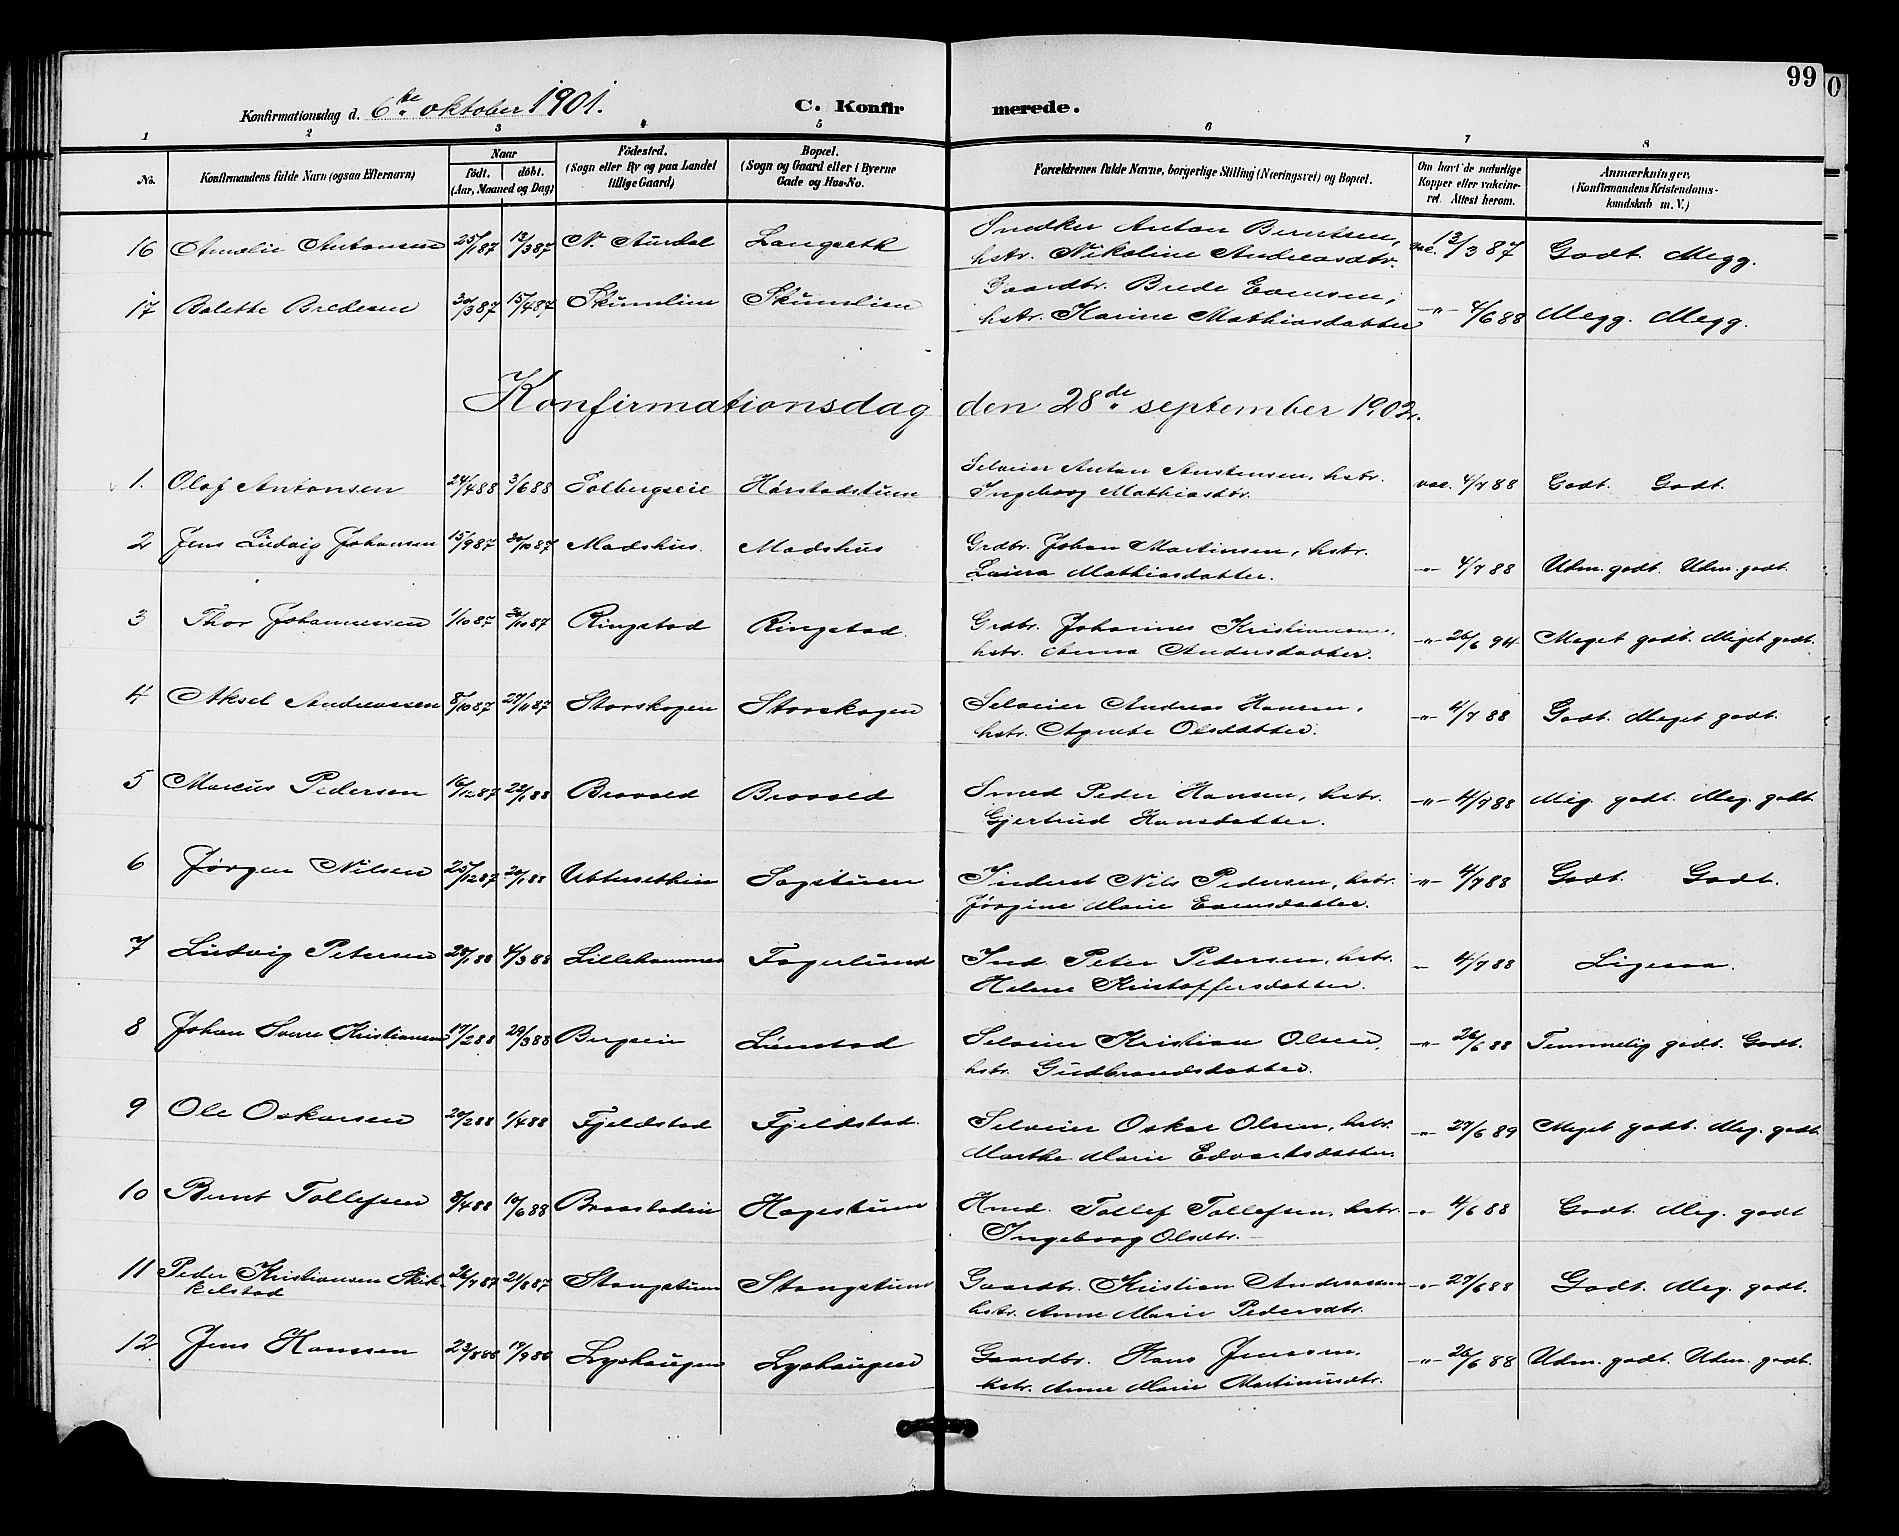 99
Konfirmationsdag d. 6te oktober 1901.
C. Konfirmerede.
1 2 3 4 5 6 7 8
No.
Konfirmandens fulde Navn (ogsaa Efternavn)
Naar
født. døbt.
(Aar, Maaned og Dag)
Fødested.
(Sogn eller By og paa Landet
tillige Gaard)
Bopæl.
(Sogn og Gaard eller i Byerne
Gade og Hus-No.
Forældrenes fulde Navne, borgerlige Stilling (Næringsvei) og Bopæl.
Om havt de naturlige
Kopper eller vakcine-
ret. Attest herom.
Anmærkninger.
(Konfirmandens Kristendoms-
kundskab m. V.)
16 Amalie Antonsen 25/1 87 13/3 87 N. Aurdal Langseth Snedker Anton Berntsen, vac. 13/3 87 Godt. Megg.
hstr. Nikoline Andreasdtr.
17 Bolette Bredesen 30/3 87 15/4 87 Skumlien Skumlien Gaardbr. Brede Evensen, -"- 4/6 88 Megg. Megg.
hstr. Karine Mathiasdatter
Konfirmationsdag den 28de september 1902.
1. Olaf Antonsen 24/4 88 3/6 88 Solbergseie Hørstadstuen Selveier Anton Anstensen, hstr. vac. 4/7 88 Godt. Godt.
Ingeborg Mathiasdtr.
2 Jens Ludvig Johansen 15/9 87 30/10 87 Madshus. Madshus Grdbr. Johan Martinsen, hstr. -"- 4/7 88 Udm. godt. Udm. godt.
Laura Mathiasdatter.
3 Thor Johannessen 1/10 87 30/10 87 Ringstad Ringstad. Grdbr. Johannes Kristiansen, -"- 26/6 94 Meget godt. Meget godt.
hstr. Anna Andersdatter.
4 Aksel Andreassen 8/10 87 27/11 87 Storskogen Storskogen Selveier Andreas Hansen, -"- 4/7 88 Godt. Meget godt.
hstr. Agnete Olsdatter.
5 Marcus Pedersen 16/12 87 22/1 88 Brovold Brovold Smed Peder Hansen, hstr. -"- 4/7 88 Meg. godt. Meg. godt
Gjertrud Hansdatter.
6 Jørgen Nilsen 25/12 87 Sagstuen Inderst Nils Pedersen, hstr. -"- 4/7 88 Godt. Godt.
Jørgine Marie Evensdatter.
7 Ludvig Petersen 28/1 88 4/3 88 Lillehammer Fagerlund Ind. Peter Pedersen, hstr. -"- 4/7 88 Ligesaa.
Helene Kristoffersdatter.
8 Johan Sverre Kristiansen 17/2 88 29/3 88 Bergseie Lienstad Selveier Kristian Olsen, -"- 26/6 88 Temmelig godt. Godt.
hstr. Gudbrandsdatter.
9 Ole Oskarsen 20/2 88 1/4 88 Fjeldstad Fjeldstad. Selveier Oskar Olsen, hstr. -"- 27/6 89 Meget godt. Meg. godt
Marthe Marie Edvartsdatter.
10 Bernt Tollefsen 8/4 88 10/6 88 Braastadeie Hagestuen Hmd. Tollef Tollefsen, hstr. -"- 4/6 88 Godt. Meg. godt
Ingeborg Olsdtr.
11 Peder Kristiansen Skik- 26/7 87 21/8 87 Stangstuen Stangstuen Gaardbr. Kristian Andreassen -"- 27/6 88 Godt. Meg. godt.
kelstad hstr. Anne Marie Pedersdtr.
12 Jens Hanssen 23/8 86 19/9 86 Lyshaugen Lyshaugen Gaardbr. Hans Jenssen. -"- 26/6 88 Udm. godt. Udm. godt.
hstr. Anne Marie Martinusdtr.